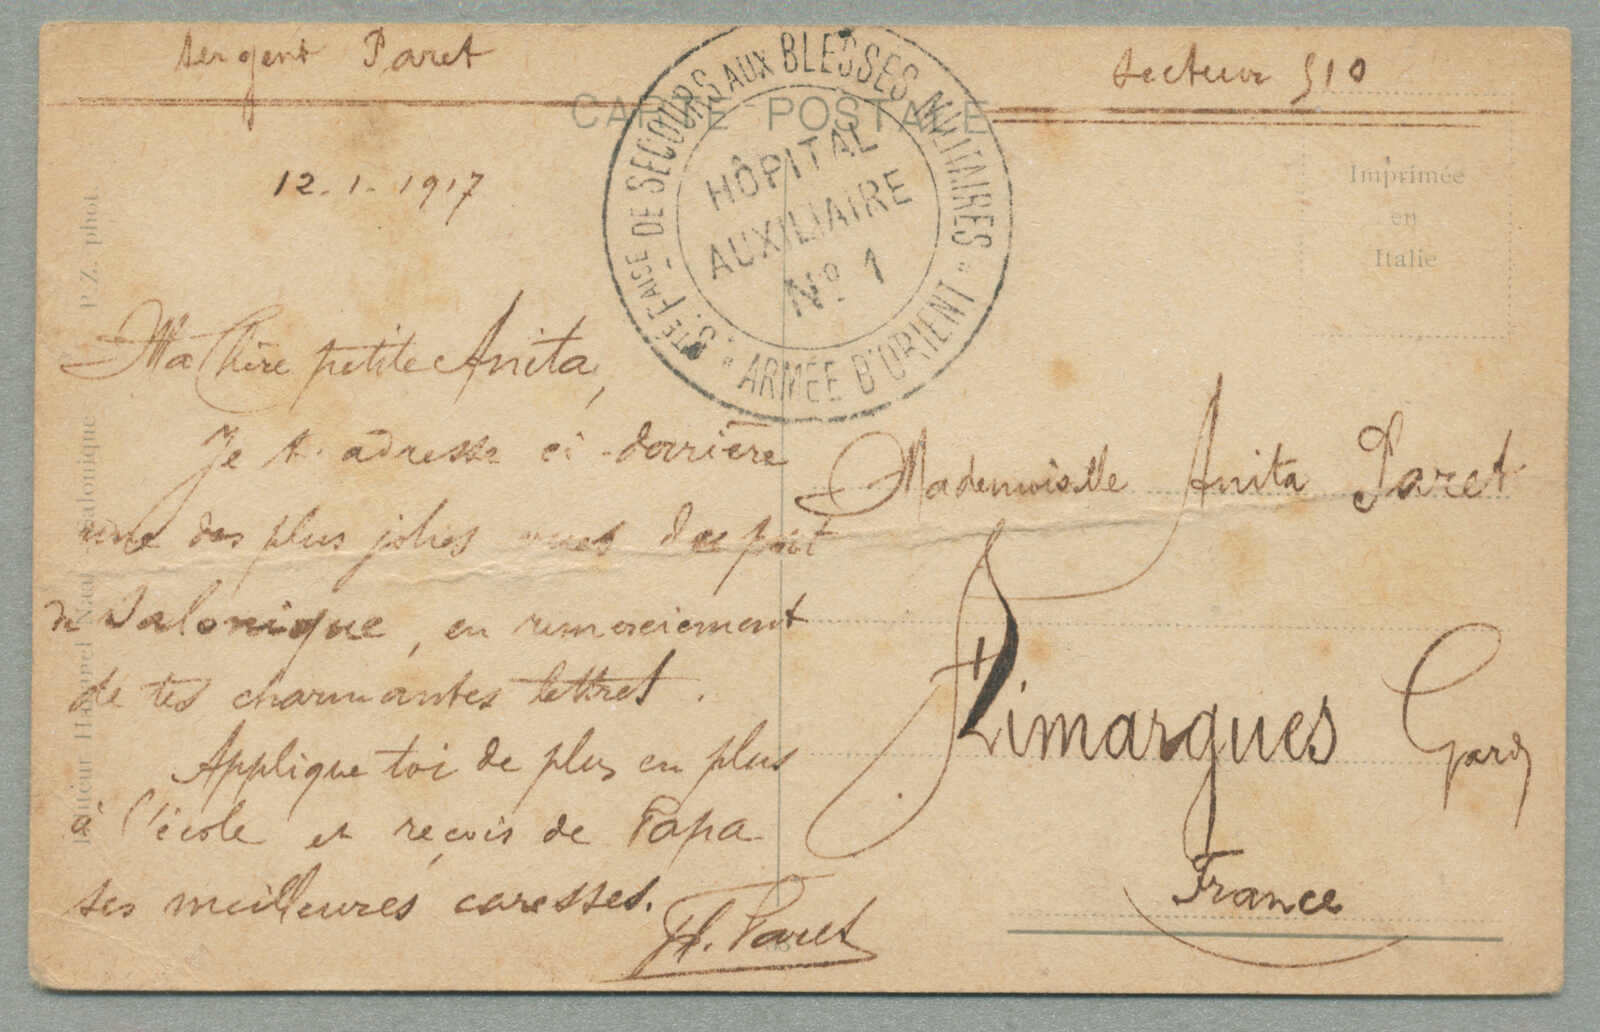 Sergent Paret
Secteur 510
CARTE POSTALE
Sté FAISE DE SECOURS AUX BLESSÉS MILITAIRES
HÔPITAL
AUXILIAIRE
No. 1
"ARMÉE D'ORIENT"
Imprimée
en
Italie
12-1-1917
Ma Chère petite Anita,
Je t. adresse ci-derrière
une des plus jolies vues du port
de Salonique, en remerciement
de tes charmantes lettres.
Applique toi de plus en plus
à l'école et reçois de Papa
ses meilleures caresses.
H. Paret
Mademoiselle Anita Paret
Aimargues Gard
France
Editeur Hananel Naar Salonique P.Z. phot.